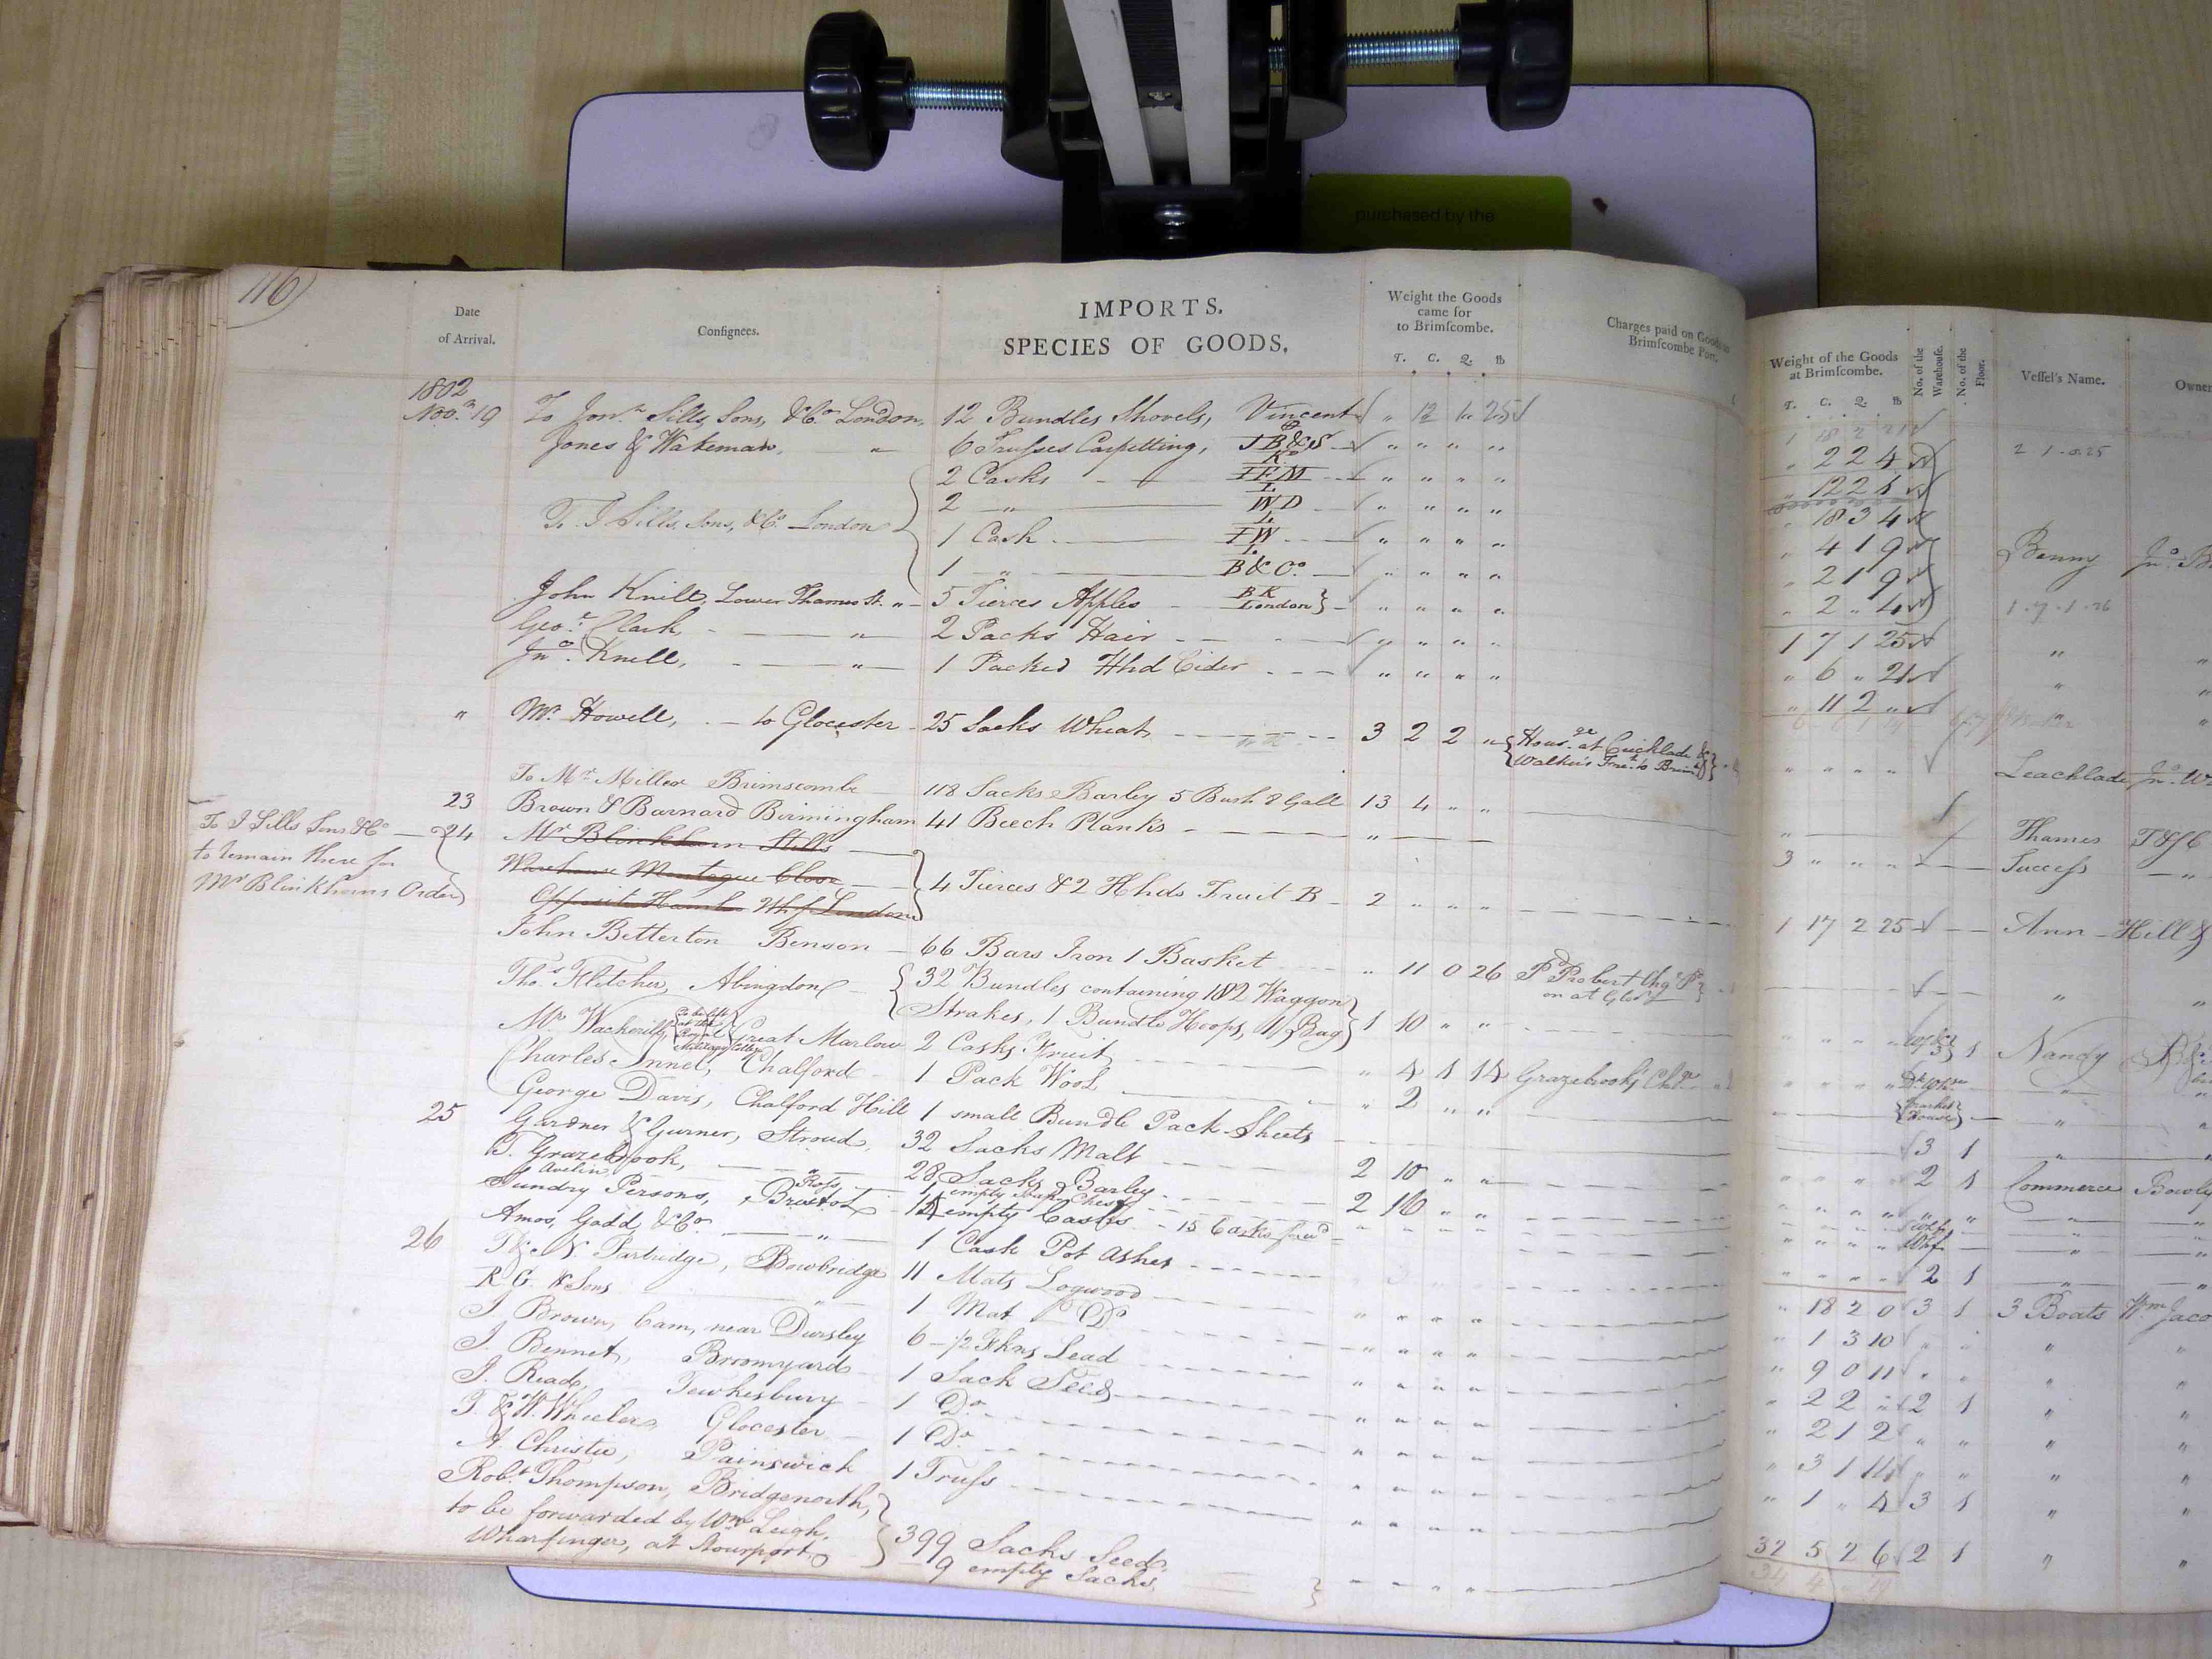 purchased by the
116
Date of Arrival.
Consignees.
IMPORTS.
SPECIES OF GOODS.
Weight the Goods came for to Brimscombe.
T. C. Q. lb
Charges paid on Goods to Brimscombe Port.
Weight of the Goods at Brimscombe.
T. C. Q. lb
No. of the Warehouse.
No. of the Floor.
Vessel's Name.
Owner
1802
Novr. 19 To Jonn. Sills, Sons, &Co. London, 12 Bundles Shovels, Vincent " 12 1 25
1 18 2 21
Jones & Wakeman, " 6 Trusses Carpetting, JB&S " " " "
" 2 2 4 2 1 . 0 . 25
2 Casks IFM " " " "
" 12 2 8
2 " WD " " " "
" 18 3 4
To J Sills, Sons, &Co. London 1 Cask IW " " " "
" 4 1 9 Benny Jno. B
1 " B&Co. " " " "
" 2 1 9
John Knill, Lower Thames St. " 5 Tierces Apples BK London " " " "
" 2 " 4 1 . 7 . 1 . 26
Geo. Clark, " 2 Packs Hair " " " "
1 7 1 25 "
Jno. Knill, " 1 Packed Hhd Cider " " " "
" 6 " 21 "
" 11 2 "
" Mr. Howell, to Glocester 25 Sacks Wheat 3 2 2 " Housge. at Cricklade &
Walker's Frnet. to Brim
" " " " Leachlade Jno. W
To Mr. Miller Brimscombe 118 Sacks Barley 5 Bush 8 Gall 13 4 " "
Thames T&JC
23 Brown & Barnard Birmingham 41 Beech Planks "
3 " " " Success "
To J Sills Sons &Co. 24 Mr Blinkhorn Stills
to remain there for Warehouse Montague Close
Mr Blinkhorns Order Opposite Hambro Whf London 4 Tierces & 2 Hhds Fruit B 2 " " "
1 17 2 25 Ann Hill &
John Betterton Benson 66 Bars Iron 1 Basket " 11 0 26 Pd Probert Chgs. on at Glosr.
" "
Thos. Flitcher, Abingdon 32 Bundles containing 182 Waggon
Strakes, 1 Bundle Hoops, 1 Bag 1 10 " "
" " " " 1 Nancy
Mr. To be left at the Royal Military College Great Marlow 2 Casks Fruit " 4 1 14 Grazebrook's Chge.
Charles Innel, Chalford 1 Pack Wool " 2 " "
Market House "
George Davis, Chalford Hill 1 small Bundle Pack Sheets
3 1 "
25 Gardner & Gurner, Stroud, 32 Sacks Malt 2 10 " "
" " " " 2 1 Commerce Bowly
T. Grazebrook, " 28 Sacks Barley 2 16 " "
" " " " " " " "
Avelin Ross, 1 empty Chest
Sundry Persons, Bristol 14 empty Casks 15 Casks
" " " " Whf " "
Amos, Gadd, &Co. " 1 Cask Pot Ashes
" " " " 2 1 " "
26 T & N Partridge, Bowbridge 11 Mats Logwood " " " "
" 18 2 0 3 1 3 Boats Wm. Jaco
R G & Sons " 1 Mat Do " " " "
" 1 3 10 " " " "
J. Brown, Cam, near Dursley 6 - 1/2 Fkns Lead " " " "
" 9 0 11 " " " "
J. Bennet, Bromyard 1 Sack Seed " " " "
" 2 2 " 2 1 " "
J. Read, Tewkesbury 1 Do. " " " "
" 2 1 2 " " " "
T. & W. Wheeler, Glocester 1 Do. " " " "
" 3 1 " " " "
A. Christie, Painswick 1 Truss " " " "
" 1 " 4 3 1 " "
Robt. Thompson, Bridgenorth,
to be forwarded by Wm. Leigh,
Wharfinger, at Stourport 399 Sacks Seed
9 empty Sacks, " " " "
32 5 2 6 2 1 " "